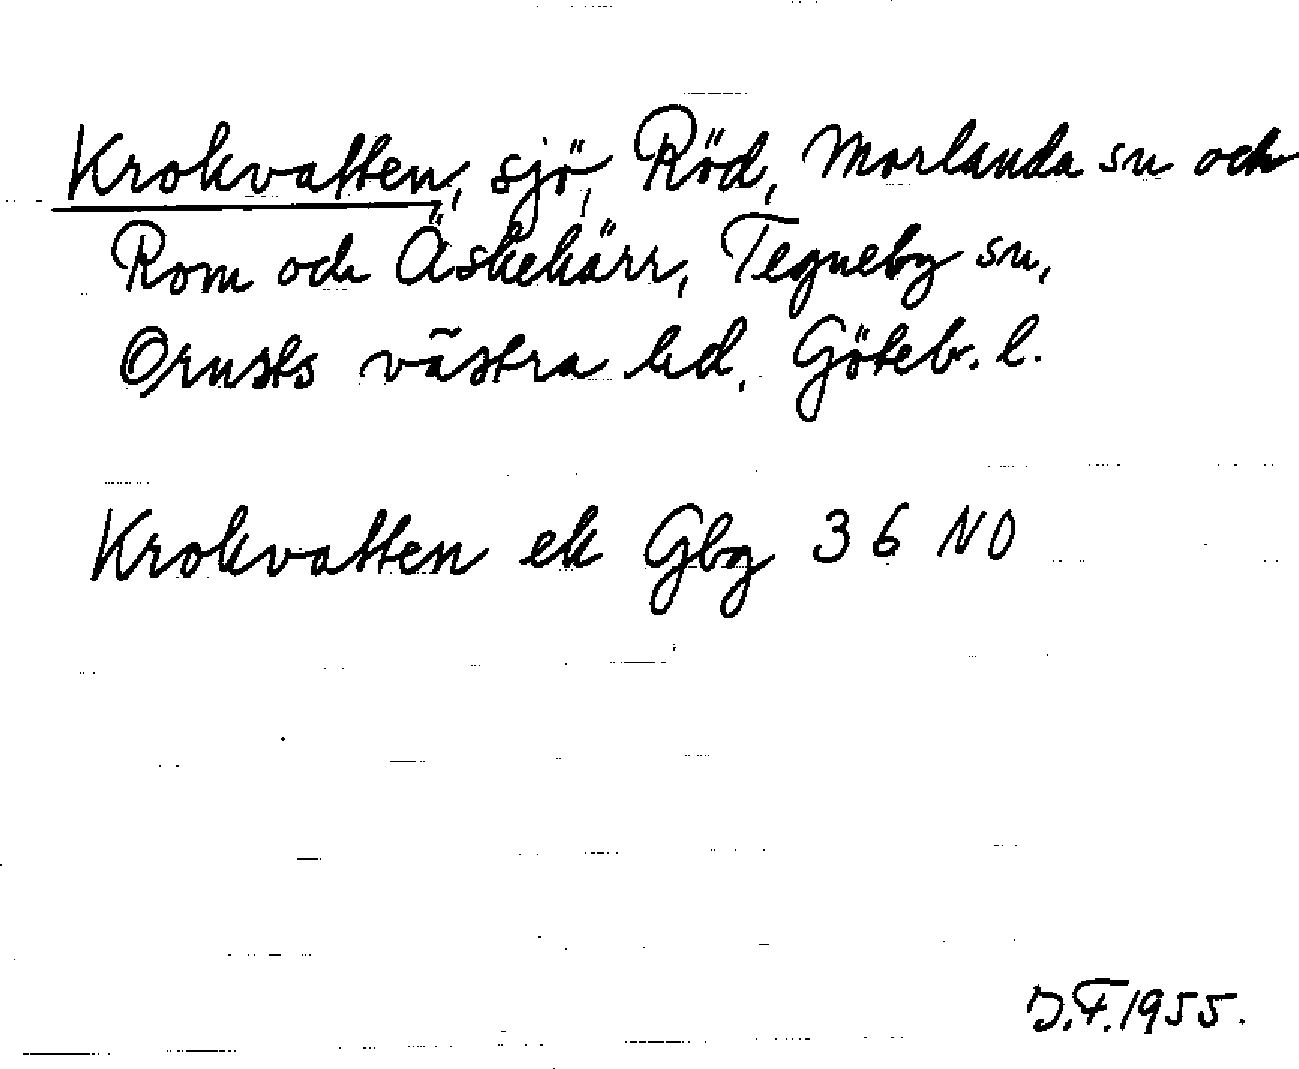 Krokvatten, sjö, Röd, Morlanda sn och
Rom och Äskekärr, Tegneby sn,
Orusts västra hd, Göteb. l.
Krokvatten ek Gbg 36 NO
D.F. 1955.